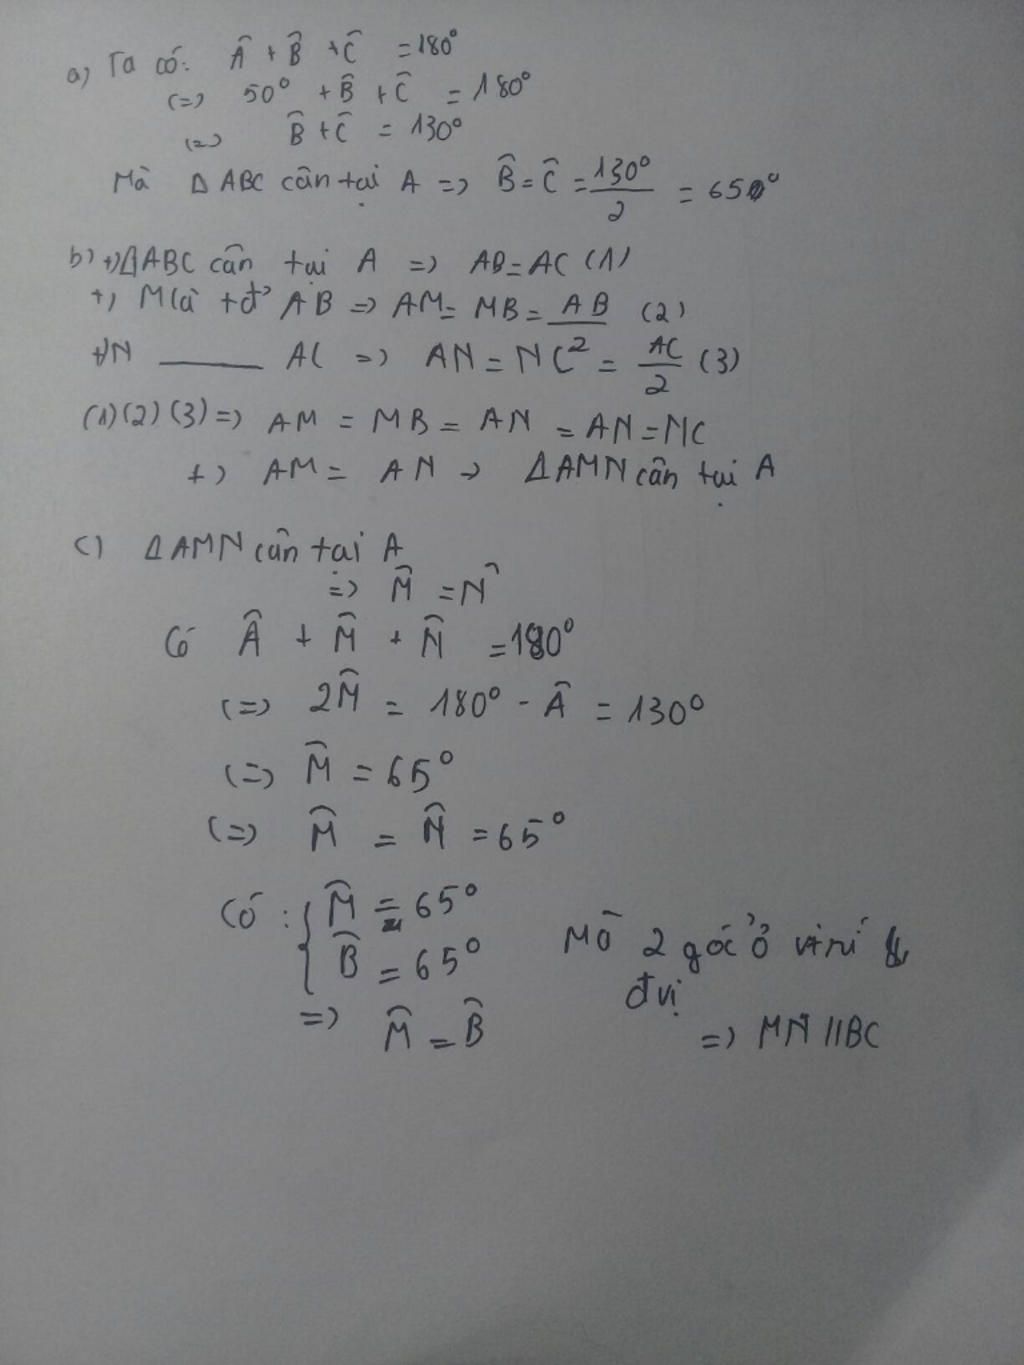 a) Ta có: Â + B̂ + Ĉ = 180°
(=) 50° + B̂ + Ĉ = 180°
(=) B̂ + Ĉ = 130°
Mà Δ ABC cân tại A => B̂ = Ĉ = 130°/2 = 65°
b) +) ΔABC cân tại A => AB = AC (1)
+) M là tđ AB => AM = MB = AB/2 (2)
+) N ——— AC => AN = NC = AC/2 (3)
(1)(2)(3) => AM = MB = AN = AN = NC
+) AM = AN -> ΔAMN cân tại A
c) ΔAMN cân tại A
=> M̂ = N̂
Có Â + M̂ + N̂ = 180°
(=) 2M̂ = 180° - Â = 130°
(=) M̂ = 65°
(=) M̂ = N̂ = 65°
Có : { M̂ = 65°
B̂ = 65°
Mà 2 góc ở vị trí
đvị
=> M̂ = B̂
=> MN // BC